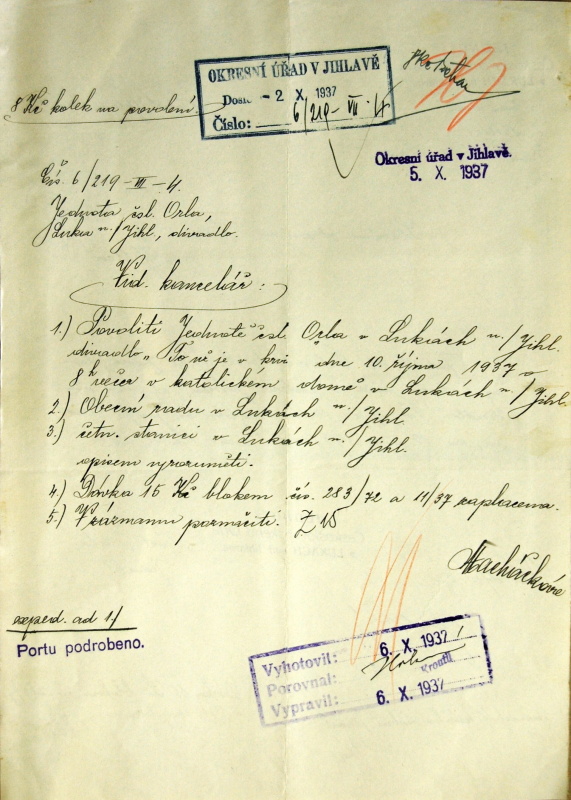 OKRESNÍ ÚŘAD V JIHLAVĚ
Došlo - 2 X. 1937
Číslo: 6/219-VII-4
8 Kč kolek na povolení.
Okresní úřad v Jihlavě.
5. X. 1937
Čís. 6/219-VII-4.
Jednota čsl. Orla,
Luka n./Jihl., divadlo.
Vid. kancelář:
1.) Povoliti Jednotě čsl. Orla v Lukách n./Jihl.
divadlo „To už je v krvi" dne 10. října 1937 o
8 h večer v katolickém domě v Lukách n./Jihl.
2.) Obecní radu v Lukách n./Jihl
3.) četn. stanici v Lukách n./Jihl.
opisem vyrozuměti.
4.) Dávka 15 Kč blokem čís. 283/72 a 11/37 zaplacena.
5.) V záznamu poznačiti.
Macháčková
exped. ad 1/
Portu podrobeno.
Vyhotovil: 6. X. 1937
Porovnal: Kroutil
Vypravil: 6. X. 1937